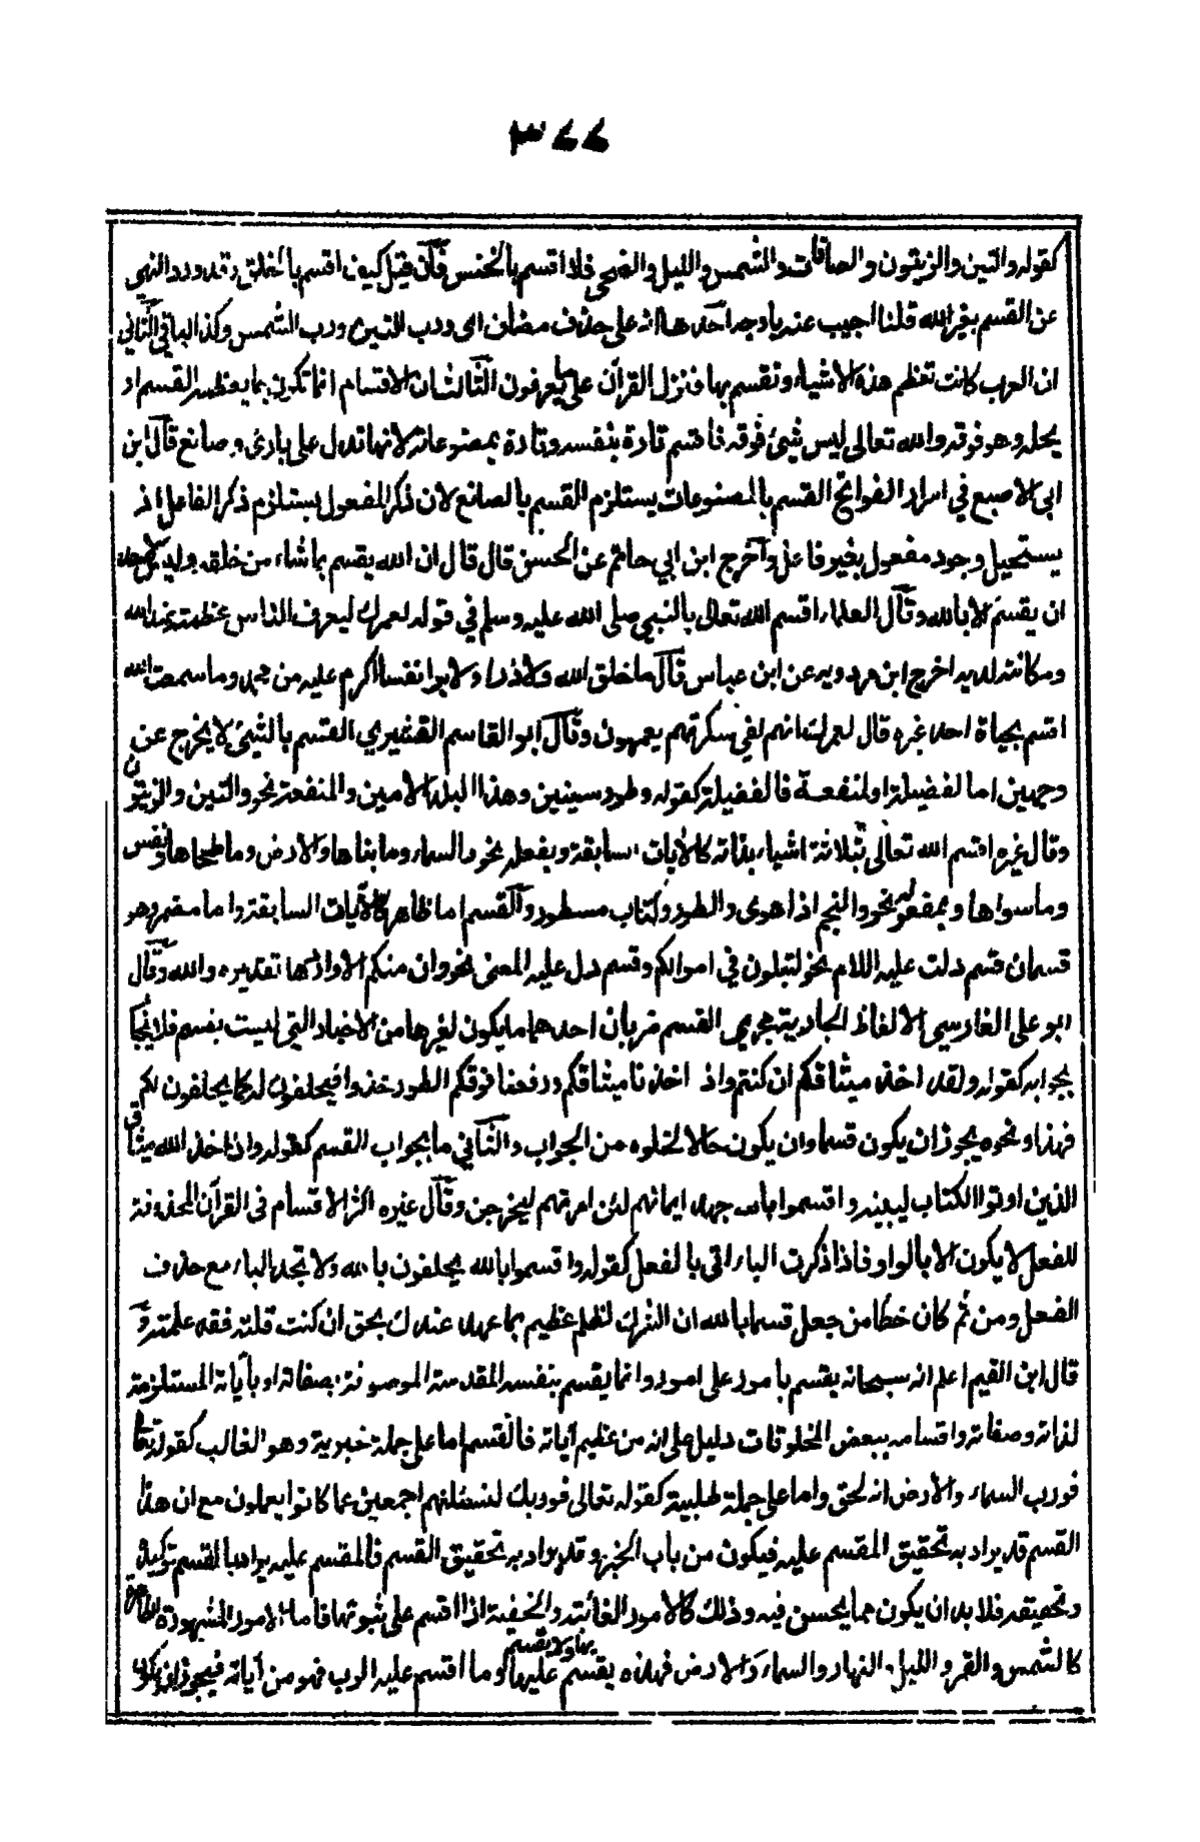 ٣٧٧
كقوله والتين والزيتون والصافات والشمس والليل والضحى فلا اقسم بالخنس فان قيل كيف اقسم بالخلق وقد ورد النهي
عن القسم بغير الله قلنا اجيب عنه باوجه احدها انه على حذف مضاف اى ورب التين ورب الشمس وكذا الباقي الثاني
ان العرب كانت تعظم هذه الاشياء وتقسم بها فنزل القرآن على ما يعرفون الثالث ان الاقسام انما تكون بما يعظمه القسم او
يجله وهو فوقه والله تعالى ليس شيئ فوقه فاقسم تارة بنفسه وتارة بمصنوعاته لانها تدل على بارئ وصانع قال ابن
ابى الاصبع في اسرار الفواتح القسم بالمصنوعات يستلزم القسم بالصانع لان ذكر المفعول يستلزم ذكر الفاعل اذ
يستحيل وجود مفعول بغير فاعل وآخرج ابن ابي حاتم عن الحسن قال قال ان الله يقسم بما شاء من خلقه وليس لاحد
ان يقسم الا بالله وقال العلماء اقسم الله تعالى بالنبي صلى الله عليه وسلم في قوله لعمرك ليعرف الناس عظمته عند الله
ومكانته لديه اخرج ابن مردويه عن ابن عباس قال ما خلق الله ولا ذرا ولا برا نفسا اكرم عليه من محمد وما سمعت الله
اقسم بحياة احد غيره قال لعمرك انهم لفي سكرتهم يعمهون وقال ابو القاسم القشيري القسم بالشيئ لا يخرج عن
وجهين اما لفضيلة او لمنفعة فالفضيلة كقوله وطور سينين وهذا البلد الامين والمنفعة نحو والتين والزيتون
وقال غيره اقسم الله تعالى بثلاثة اشياء بذاته كالايات السابقة وبفعله نحو والسماء وما بناها والارض وما طحاها ونفس
وما سواها وبمفعوله نحو والنجم اذا هوى والطور وكتاب مسطور والقسم اما ظاهر كالآيات السابقة واما مضمر وهو
قسمان قسم دلت عليه اللام نحو لتبلون في اموالكم وقسم دل عليه المعنى نحو وان منكم الا واردها تقديره والله وقال
ابو على الفارسي الالفاظ الجارية مجرى القسم ضربان احدهما ما يكون لغيرها من الاخبار التي ليست بقسم فلا يجاب
بجوابه كقوله ولقد اخذ ميثاقكم ان كنتم واذ اخذنا ميثاقكم ورفعنا فوقكم الطور خذوا فيحلفون له كما يحلفون لكم
فهذا ونحوه يجوز ان يكون قسما وان يكون حالا لخلوه من الجواب والثاني ما بجواب القسم كقوله واذ اخذ الله ميثاق
الذين اوتوا الكتاب ليبينه واقسموا بالله جهد ايمانهم لئن امرتهم ليخرجن وقال غيره اكثر الاقسام فى القرآن المحذوفة
للفعل لا يكون الا بالواو فاذا ذكرت الباء اتى بالفعل كقوله واقسموا بالله يحلفون بالله ولا تجد الباء مع حذف
الفعل ومن ثم كان خطا من جعل قسما بالله ان الشرك لظلم عظيم بما عهد عندك بحق ان كنت قلته فقد علمته وقـ
قال ابن القيم اعلم انه سبحانه يقسم بامور على امور وانما يقسم بنفسه المقدسة الموصوفة بصفاته او بآياته المستلزمة
لذاته وصفاته واقسامه ببعض المخلوقات دليل على انه من عظيم آياته فالقسم اما على جملة خبرية وهو الغالب كقوله تعا
فورب السماء والارض انه لحق واما على جملة طلبية كقوله تعالى فوربك لنسئلنهم اجمعين عما كانوا يعملون مع ان هذا
القسم قد يراد به تحقيق المقسم عليه فيكون من باب الخبر وقد يراد به تحقيق القسم فالمقسم عليه يراد بالقسم توكيده
وتحقيقه فلا بد ان يكون مما يحسن فيه وذلك كالامور الغائبة والخفية اذا اقسم على ثبوتها فاما الامور المشهودة الظاهرة
كالشمس والقمر والليل والنهار والسماء والارض فهذه يقسم بها ولا يقسم عليها وما اقسم عليه الرب فهو من آياته فيجوز ان يكون